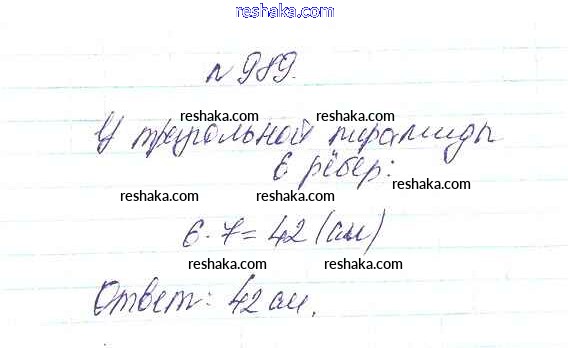 reshaka.com
№989.
reshaka.com reshaka.com
У треугольной пирамиды
reshaka.com reshaka.com
6 рёбер:
reshaka.com reshaka.com reshaka.com
6·7=42 (см)
reshaka.com reshaka.com
Ответ: 42 см.
reshaka.com